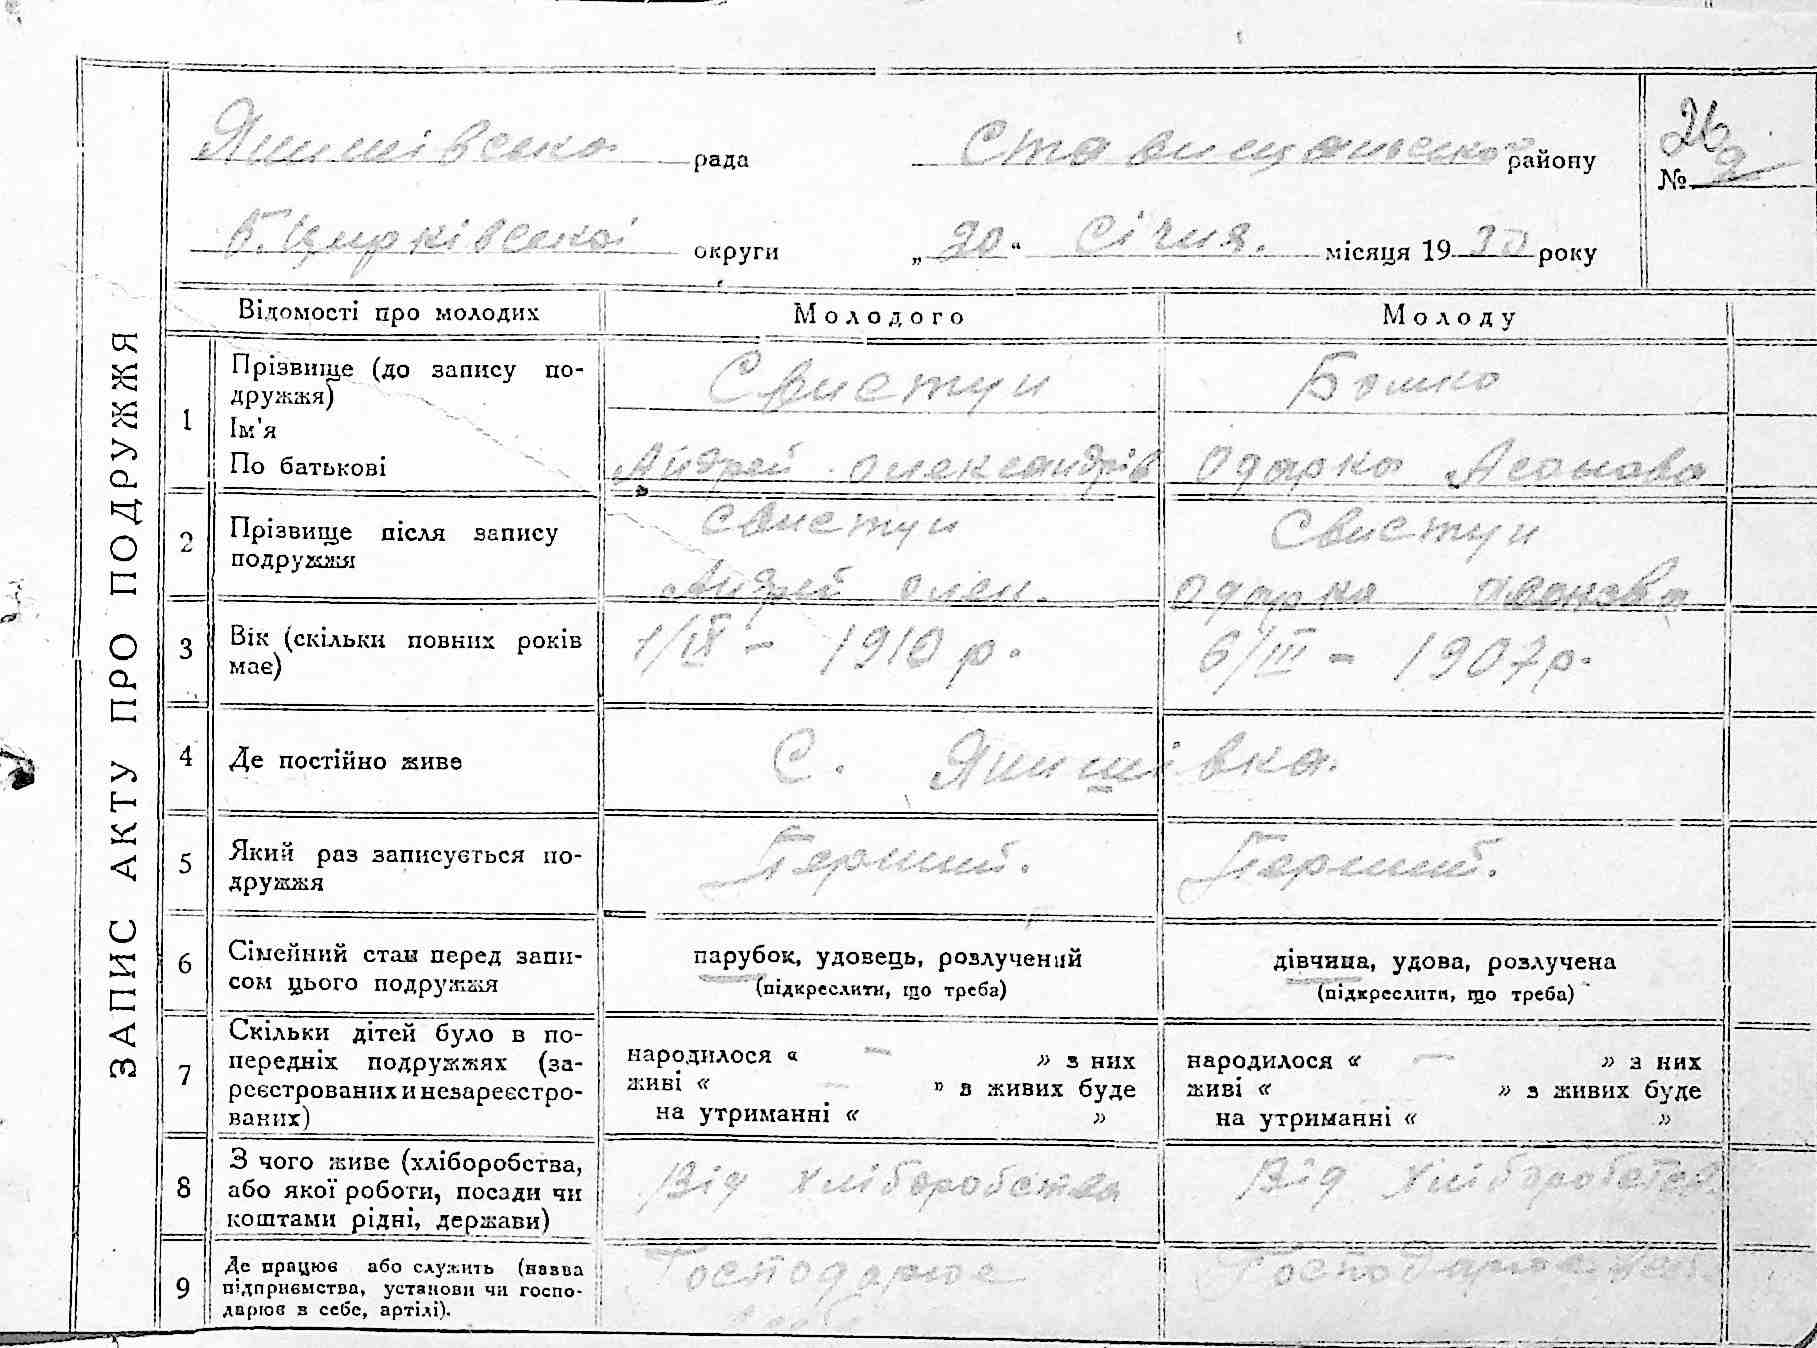 ЗАПИС АКТУ ПРО ПОДРУЖЖЯ
Янишівська рада Ставищанської району
№ 2
Б. Церківської округи „20“ Січня. місяця 1930 року
Відомості про молодих Молодого Молоду
1 Прізвище (до запису по-
дружжя) Свистун Бошко
Ім'я
По батькові Андрей Олександрів Одарка Леонова
2 Прізвище після запису
подружжя Свистун Свистун
Андрей Олек. Одарка Леонова
3 Вік (скільки повних років
має) 1/IX – 1910 р. 6/III – 1907 р.
4 Де постійно живе С. Янишівка.
5 Який раз записується по-
дружжя Перший. Перший.
6 Сімейний стан перед запи-
сом цього подружжя
парубок, удовець, розлучений
(підкреслити, що треба)
дівчина, удова, розлучена
(підкреслити, що треба)
7 Скільки дітей було в по-
передніх подружжях (за-
реєстрованих и незареєстро-
ваних)
народилося « — » з них
живі « — » в живих буде
на утриманні « »
народилося « — » з них
живі « » з живих буде
на утриманні « »
8 З чого живе (хліборобства,
або якої роботи, посади чи
коштами рідні, держави)
Від хліборобства Від хліборобства
9 Де працює або служить (назва
підприємства, установи чи госпо-
дарює в себе, артілі).
Господарює Господарює